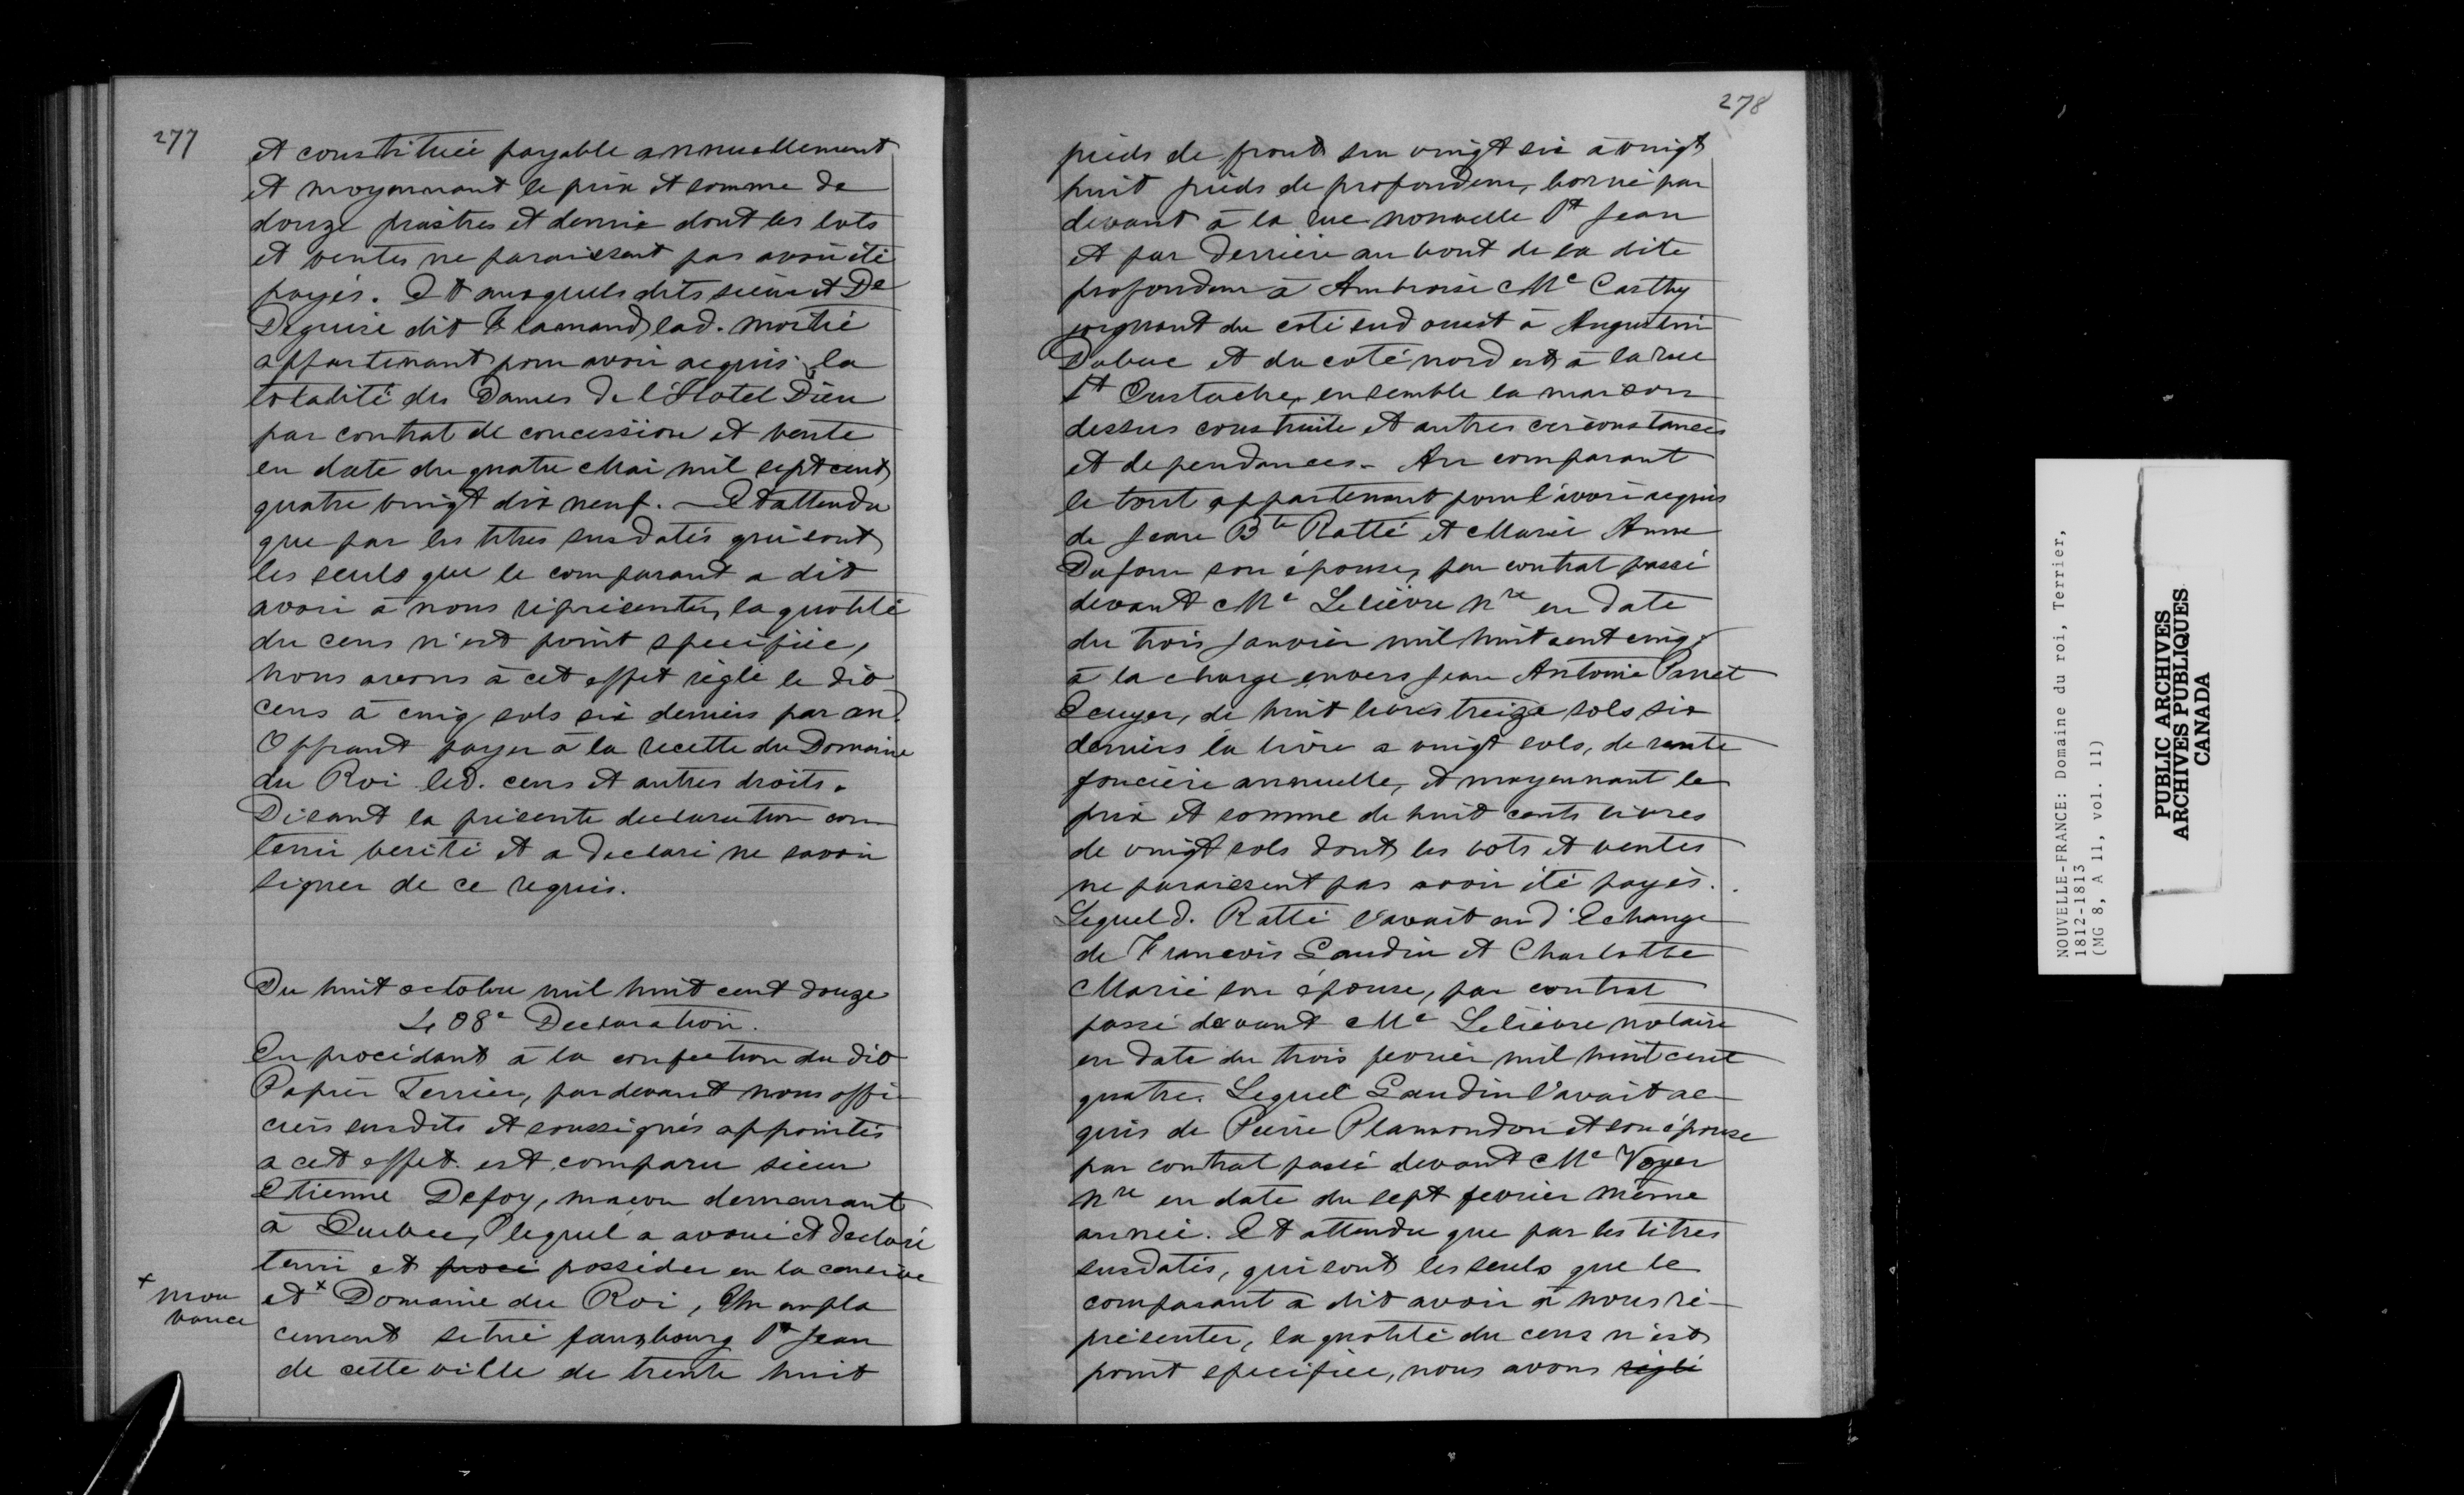 277
et constituée payable annuellement
et moyennant le prix et somme de
douze piastres et demie dont les lots
et ventes ne paraissent pas avoir été
payés. Et auxquels dits sieur et De
Deguise dit Flamand, lad. moitié
appartenant pour avoir acquis la
totalité des Dames de l'Hotel Dieu
par contrat de concession et vente
en date du quatre Mai mil sept cent
quatre vingt dix neuf. — Et attendu
que par les titres susdatés qui sont
les seuls que le comparant a dit
avoir à nous représenter, la quotité
du cens n'est point specifiée,
nous avons à cet effet réglé le dit
cens à cinq sols six deniers par an.
Offrant payer à la recette du Domaine
du Roi led. cens et autres droits.
Disant la présente declaration con
tenir verité et a declaré ne savoir
signer de ce requis.
Du huit octobre mil huit cent douze
408e Declaration.
En procédant à la confection du dit
Papier Terrier, pardevant nous offi-
ciers susdits et soussignés appointés
a cet effet est comparu sieur
Etienne Defoy, maçon demeurant
à Quebec, lequel a avoué et declaré
tenir et possèder en la censive
et x Domaine du Roi, Un empla
x mou
vance
cement situé fauxbourg St Jean
de cette ville de trente huit
278
pieds de front sur vingt six à vingt
huit pieds de profondeur, borné par
devant à la rue nouvelle St Jean
et par derrière au bout de la dite
profondeur à Ambroise Mc Carthy
joignant du coté sud ouest à Augustin
Dubuc et du coté nord est à la rue
St Eustache, ensemble la maison
dessus construite et autres circonstances
et dependances. Au comparant
le tout appartenant pour l'avoir acquis
de Jean Bte Ratté et Marie Anne
Dufour son épouse, par contrat passé
devant Me Lelièvre Nre en date
du trois Janvier mil huit cent cinq
à la charge envers Jean Antoine Panet
Ecuyer, de huit livres treize sols six
deniers la livre a vingt sols, de rente
foncière annuelle, et moyennant le
prix et somme de huit cents livres
de vingt sols dont les lots et ventes
ne paraissent pas avoir été payés.
Lequel d. Ratté l'avait eu d'Echange
de Francois Gaudin et Charlotte
Marié son épouse, par contrat
passé devant Me Lelièvre notaire
en date du trois fevrier mil huit cent
quatre. Lequel Gaudin l'avait ac-
quis de Pierre Plamondon et son épouse
par contrat passé devant Me Voyer
Nre en date du sept fevrier même
année. Et attendu que par les titres
susdatés, qui sont les seuls que le
comparant a dit avoir à nous ré-
présenter, la quotité du cens n'est
point specifiée, nous avons réglé
NOUVELLE-FRANCE: Domaine du roi, Terrier,
1812-1813
(MG 8, A 11, vol. 11)
PUBLIC ARCHIVES
ARCHIVES PUBLIQUES
CANADA